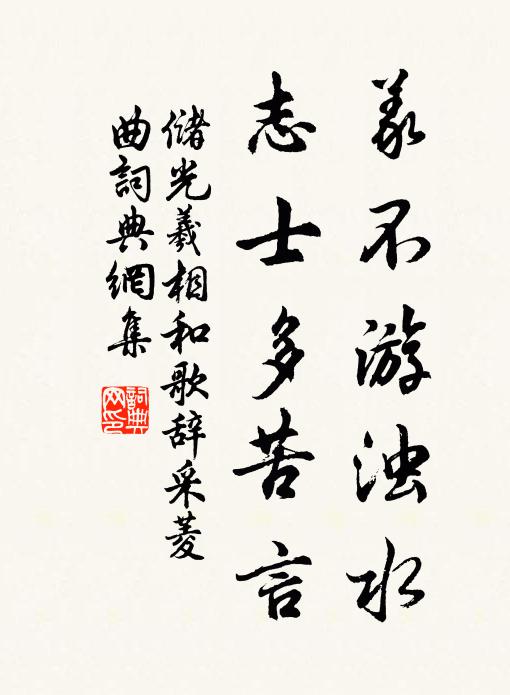 义不游浊水
志士多苦言
储光羲相和歌辞采菱
曲词典網集
詞典
网印